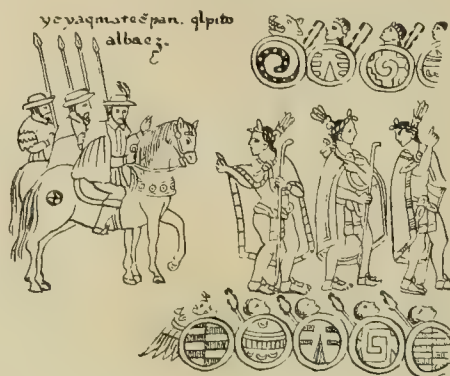 ycyaqmatečpan. qlpito
albaez.